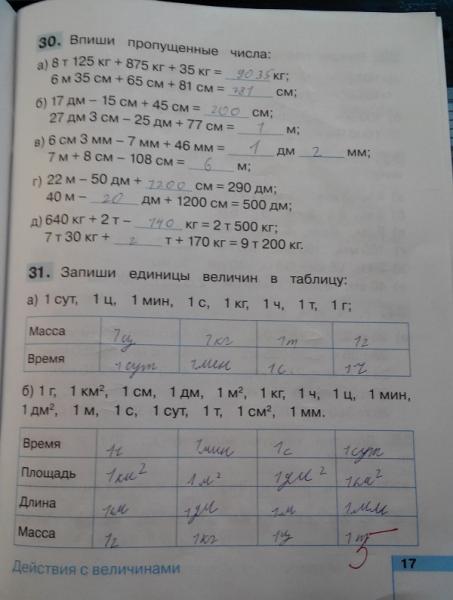 30. Впиши пропущенные числа:
а) 8 т 125 кг + 875 кг + 35 кг = 9035 кг;
6 м 35 см + 65 см + 81 см = 781 см;
б) 17 дм – 15 см + 45 см = 200 см;
27 дм 3 см – 25 дм + 77 см = 1 м;
в) 6 см 3 мм – 7 мм + 46 мм = 1 дм 2 мм;
7 м + 8 см – 108 см = 6 м;
г) 22 м – 50 дм + 1200 см = 290 дм;
40 м – 20 дм + 1200 см = 500 дм;
д) 640 кг + 2 т – 140 кг = 2 т 500 кг;
7 т 30 кг + 2 т + 170 кг = 9 т 200 кг.
31. Запиши единицы величин в таблицу:
а) 1 сут, 1 ц, 1 мин, 1 с, 1 кг, 1 ч, 1 т, 1 г;
Масса 1ц 1кг 1т 1г
Время 1сут 1мин 1с 1ч
б) 1 г, 1 км², 1 см, 1 дм, 1 м², 1 кг, 1 ч, 1 ц, 1 мин,
1 дм², 1 м, 1 с, 1 сут, 1 т, 1 см², 1 мм.
Время 1ч 1мин 1с 1сут
Площадь 1км² 1м² 1дм²
Длина 1дм 1м 1мм
Масса 1г 1кг 1ц 1т
5
Действия с величинами 17